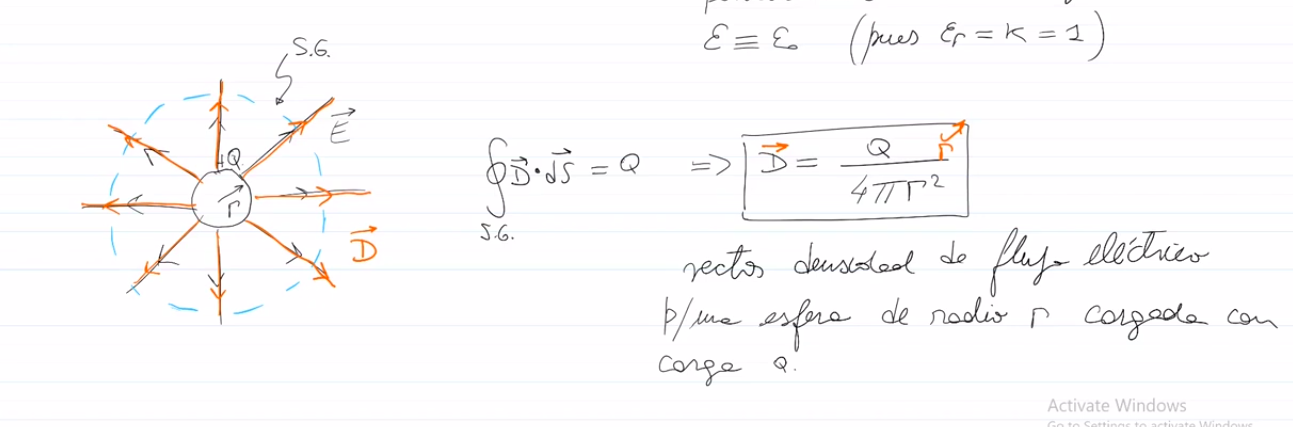 ε ≡ ε₀ (pues εr = K = 1)
S.G.
E⃗
+Q
r⃗
D⃗
∮ D⃗ · dS⃗ = Q => D⃗ = Q / 4πr² r⃗
S.G.
vector densidad de flujo eléctrico
p/una esfera de radio r cargada con
carga Q.
Activate Windows
Go to Settings to activate Windows.